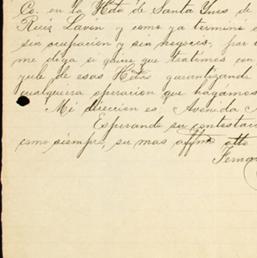 Co. en la Hda de Santa Ynes de
Ruiz Lavin y como ya terminó
sin ocupacion y sin negocio, por
me diga si quiere que tratemos un
de esas Hdas garantizando
cualquiera operacion que hagamos
Mi direccion es Avenida
Esperando su contestac
como siempre, su mas affmo atto